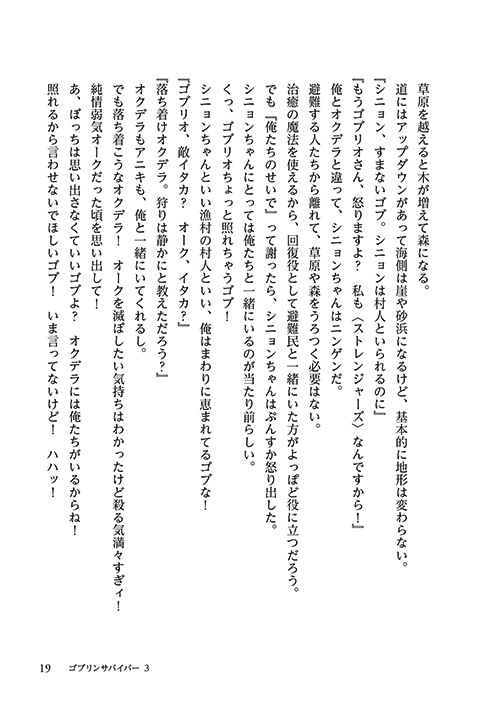 草原を越えると木が増えて森になる。
道にはアップダウンがあって海側は崖や砂浜になるけど、基本的に地形は変わらない。
『シニョン、すまないゴブ。シニョンは村人といられるのに』
『もうゴブリオさん、怒りますよ？　私も〈ストレンジャーズ〉なんですから！』
俺とオクデラと違って、シニョンちゃんはニンゲンだ。
避難する人たちから離れて、草原や森をうろつく必要はない。
治癒の魔法を使えるから、回復役として避難民と一緒にいた方がよっぽど役に立つだろう。
でも『俺たちのせいで』って謝ったら、シニョンちゃんはぷんすか怒り出した。
シニョンちゃんにとっては俺たちと一緒にいるのが当たり前らしい。
くっ、ゴブリオちょっと照れちゃうゴブ！
シニョンちゃんといい漁村の村人といい、俺はまわりに恵まれてるゴブな！
『ゴブリオ、敵イタカ？　オーク、イタカ？』
『落ち着けオクデラ。狩りは静かにと教えただろう？』
オクデラもアニキも、俺と一緒にいてくれるし。
でも落ち着こうなオクデラ！　オークを滅ぼしたい気持ちはわかったけど殺る気満々すぎィ！
純情弱気オークだった頃を思い出して！
あ、ぼっちは思い出さなくていいゴブよ？　オクデラには俺たちがいるからね！
照れるから言わせないでほしいゴブ！　いま言ってないけど！　ハハッ！
19　ゴブリンサバイバー 3